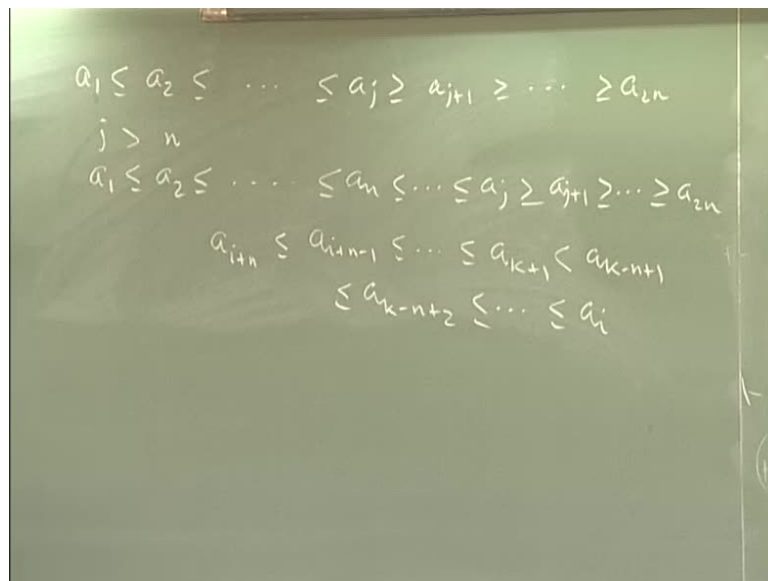 a₁ ≤ a₂ ≤ ··· ≤ aⱼ ≥ aⱼ₊₁ ≥ ··· ≥ a₂ₙ
j > n
a₁ ≤ a₂ ≤ ····· ≤ aₙ ≤ ··· ≤ aⱼ ≥ aⱼ₊₁ ≥ ··· ≥ a₂ₙ
aᵢ₊ₙ ≤ aᵢ₊ₙ₋₁ ≤ ··· ≤ aₖ₊₁ < aₖ₋ₙ₊₁
≤ aₖ₋ₙ₊₂ ≤ ··· ≤ aᵢ